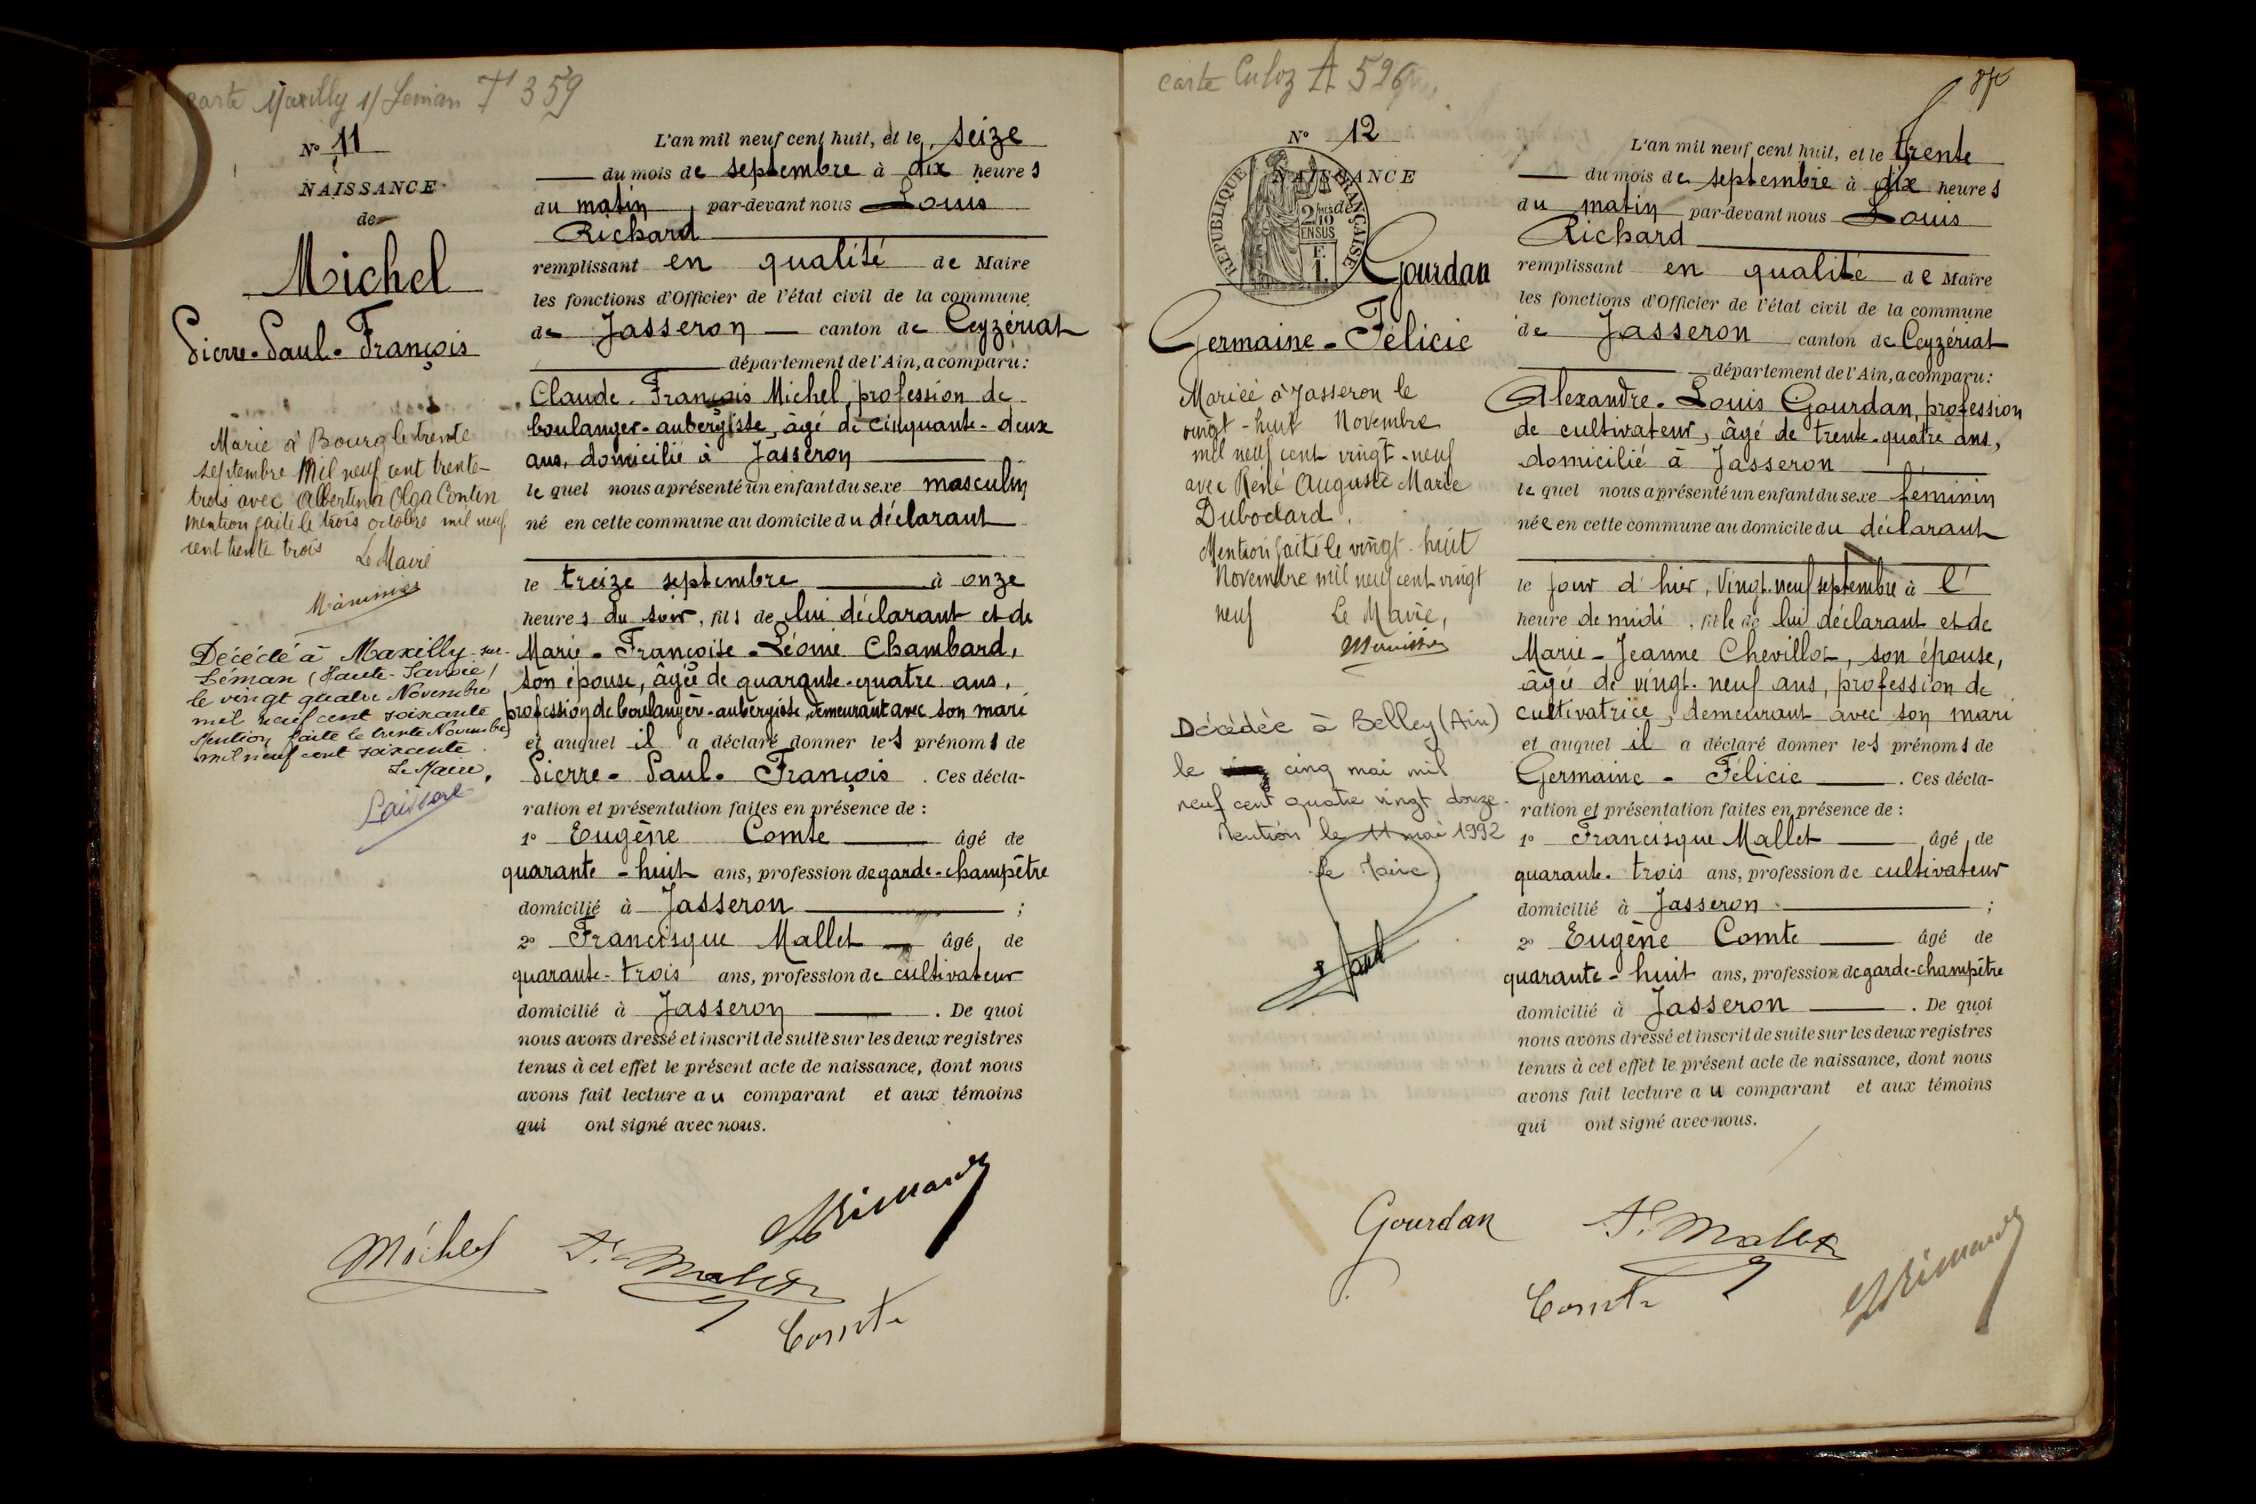 carte Maxilly s/ Leman 359
Nº 11
NAISSANCE
de
Michel
Pierre-Paul-François
Marié à Bourg le trente
septembre Mil neuf cent trente-
trois avec Albertina Olga Contin
mention faite le trois octobre mil neuf
cent trente trois
Le Maire
Décédé à Maxilly-sur-
Léman (Haute-Savoie)
le vingt quatre Novembre
mil neuf cent soixante
Mention faite le trente Novembre
mil neuf cent soixante.
Le Maire,
L'an mil neuf cent huit, et le seize
du mois de septembre à dix heures
du matin, par-devant nous Louis
Richard
remplissant en qualité de Maire
les fonctions d'Officier de l'état civil de la commune
de Jasseron canton de Ceyzériat
département de l'Ain, a comparu:
Claude-François Michel, profession de
boulanger-aubergiste, âgé de cinquante-deux
ans, domicilié à Jasseron
lequel nous a présenté un enfant du sexe masculin
né en cette commune au domicile du déclarant
le treize septembre à onze
heures du soir, fils de lui déclarant et de
Marie-Françoise-Léonie Chambard,
son épouse, âgée de quarante-quatre ans,
profession de boulangère-aubergiste, demeurant avec son mari
et auquel il a déclaré donner les prénoms de
Pierre-Paul-François. Ces décla-
ration et présentation faites en présence de :
1º Eugène Comte âgé de
quarante-huit ans, profession de garde-champêtre
domicilié à Jasseron ;
2º Francisque Mallet âgé de
quarante-trois ans, profession de cultivateur
domicilié à Jasseron. De quoi
nous avons dressé et inscrit de suite sur les deux registres
tenus à cet effet le présent acte de naissance, dont nous
avons fait lecture au comparant et aux témoins
qui ont signé avec nous.
Michel F. Mallet
Comte
carte Culoz A 526
Nº 12
NAISSANCE
de
RÉPUBLIQUE FRANÇAISE
2/10 EN SUS
1 F.
Gourdan
Germaine-Félicie
Mariée à Jasseron le
vingt-huit Novembre
mil neuf cent vingt-neuf
avec René Auguste Marie
Dubodard.
Mention faite le vingt-huit
Novembre mil neuf cent vingt
neuf Le Maire,
Décédée à Belley (Ain)
le cinq mai mil
neuf cent quatre vingt douze.
Mention le 11 mai 1992
Le Maire
L'an mil neuf cent huit, et le trente
du mois de septembre à dix heures
du matin par-devant nous Louis
Richard
remplissant en qualité de Maire
les fonctions d'Officier de l'état civil de la commune
de Jasseron canton de Ceyzériat
département de l'Ain, a comparu:
Alexandre-Louis Gourdan, profession
de cultivateur, âgé de trente-quatre ans,
domicilié à Jasseron
lequel nous a présenté un enfant du sexe féminin
née en cette commune au domicile du déclarant
le jour d'hier, vingt-neuf septembre à l'
heure de midi, fille de lui déclarant et de
Marie-Jeanne Chevillot, son épouse,
âgée de vingt-neuf ans, profession de
cultivatrice, demeurant avec son mari
et auquel il a déclaré donner les prénoms de
Germaine-Félicie. Ces décla-
ration et présentation faites en présence de :
1º Francisque Mallet âgé de
quarante-trois ans, profession de cultivateur
domicilié à Jasseron ;
2º Eugène Comte âgé de
quarante-huit ans, profession de garde-champêtre
domicilié à Jasseron. De quoi
nous avons dressé et inscrit de suite sur les deux registres
tenus à cet effet le présent acte de naissance, dont nous
avons fait lecture au comparant et aux témoins
qui ont signé avec nous.
Gourdan F. Mallet
Comte